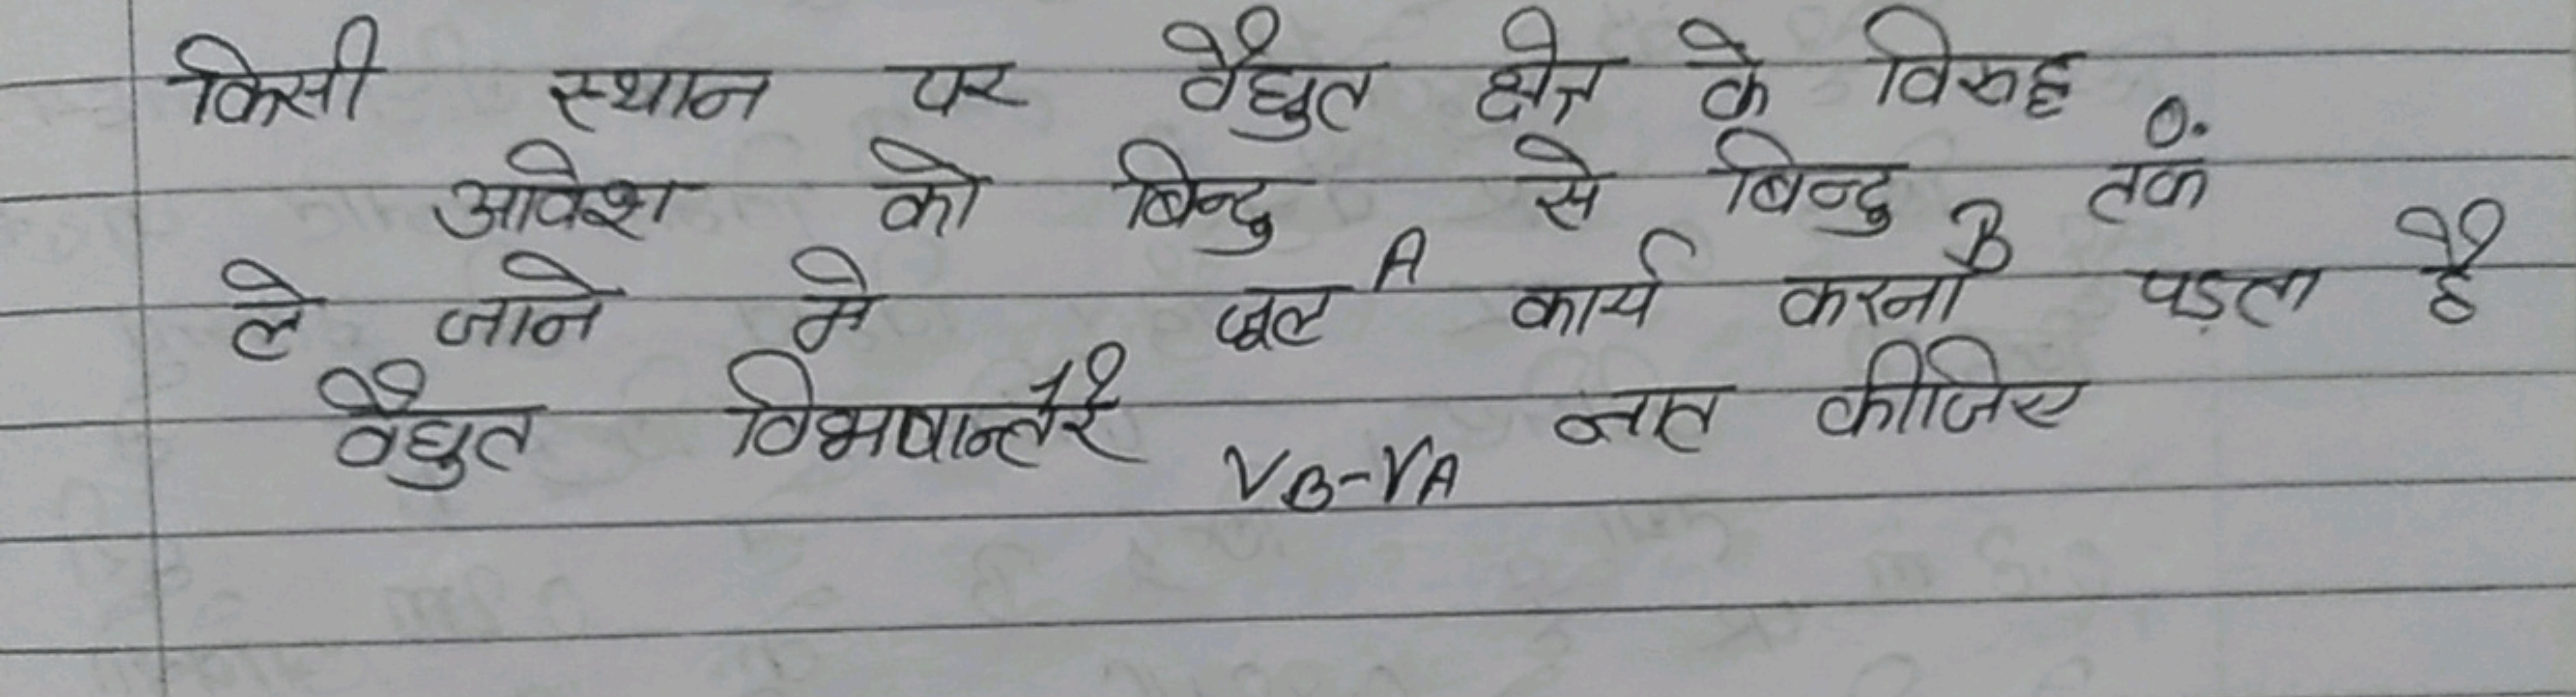 किसी स्थान पर वैद्युत क्षेत्र के विरुद्ध 0.
आवेश को बिन्दु A से बिन्दु B तक
ले जाने मे जूल कार्य करना पड़ता है
वैद्युत विभवान्तर 12 VB-VA ज्ञात कीजिए